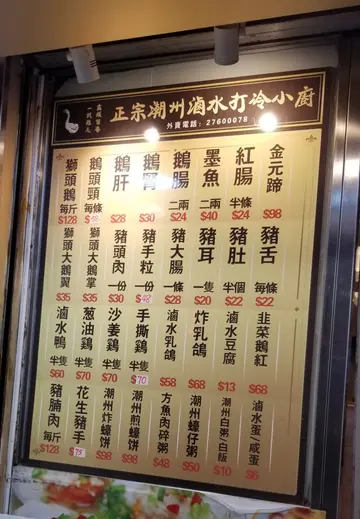 正宗潮州滷水打冷小廚
外賣電話：27600078
金元蹄 $98
紅腸 半條 $24
墨魚 二兩 $40
鵝腸 二兩 $24
鵝腎 $30
鵝肝 $28
鵝頭頸 每條
獅頭鵝 每斤 $128
豬舌 每條 $22
豬肚 半個 $22
豬耳 $20
豬大腸 一條 $28
豬手粒 一份 $48
豬頭肉 一份 $30
獅頭大鵝掌 $35
獅頭大鵝翼 $35
韭菜鵝紅 $68
滷水豆腐 $13
炸乳鴿 $68
滷水乳鴿 $58
手撕鷄 半隻 $70
沙姜鷄 半隻 $70
葱油鷄 半隻 $70
滷水鴨 半隻 $60
滷水蛋/咸蛋 $6
潮州白粥/白飯 $10
潮州蠔仔粥 $50
方魚肉碎粥 $48
潮州煎蠔饼 $98
潮州炸蠔饼 $98
花生豬手 $75
豬腩肉 每斤 $128